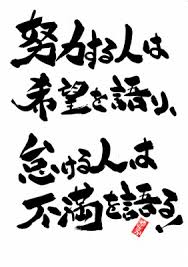 努力する人は
希望を語り、
怠ける人は
不満を語る!